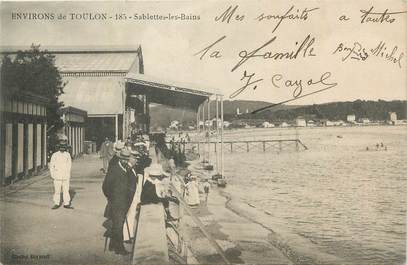 ENVIRONS de TOULON - 185 - Sablettes-les-Bains
Mes souhaits a toutes
la famille
Bon Michel
J. Cayol
Cliché Bougault